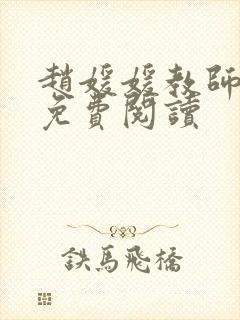 趙媛媛教師
免費閱讀
鉄馬飛橋